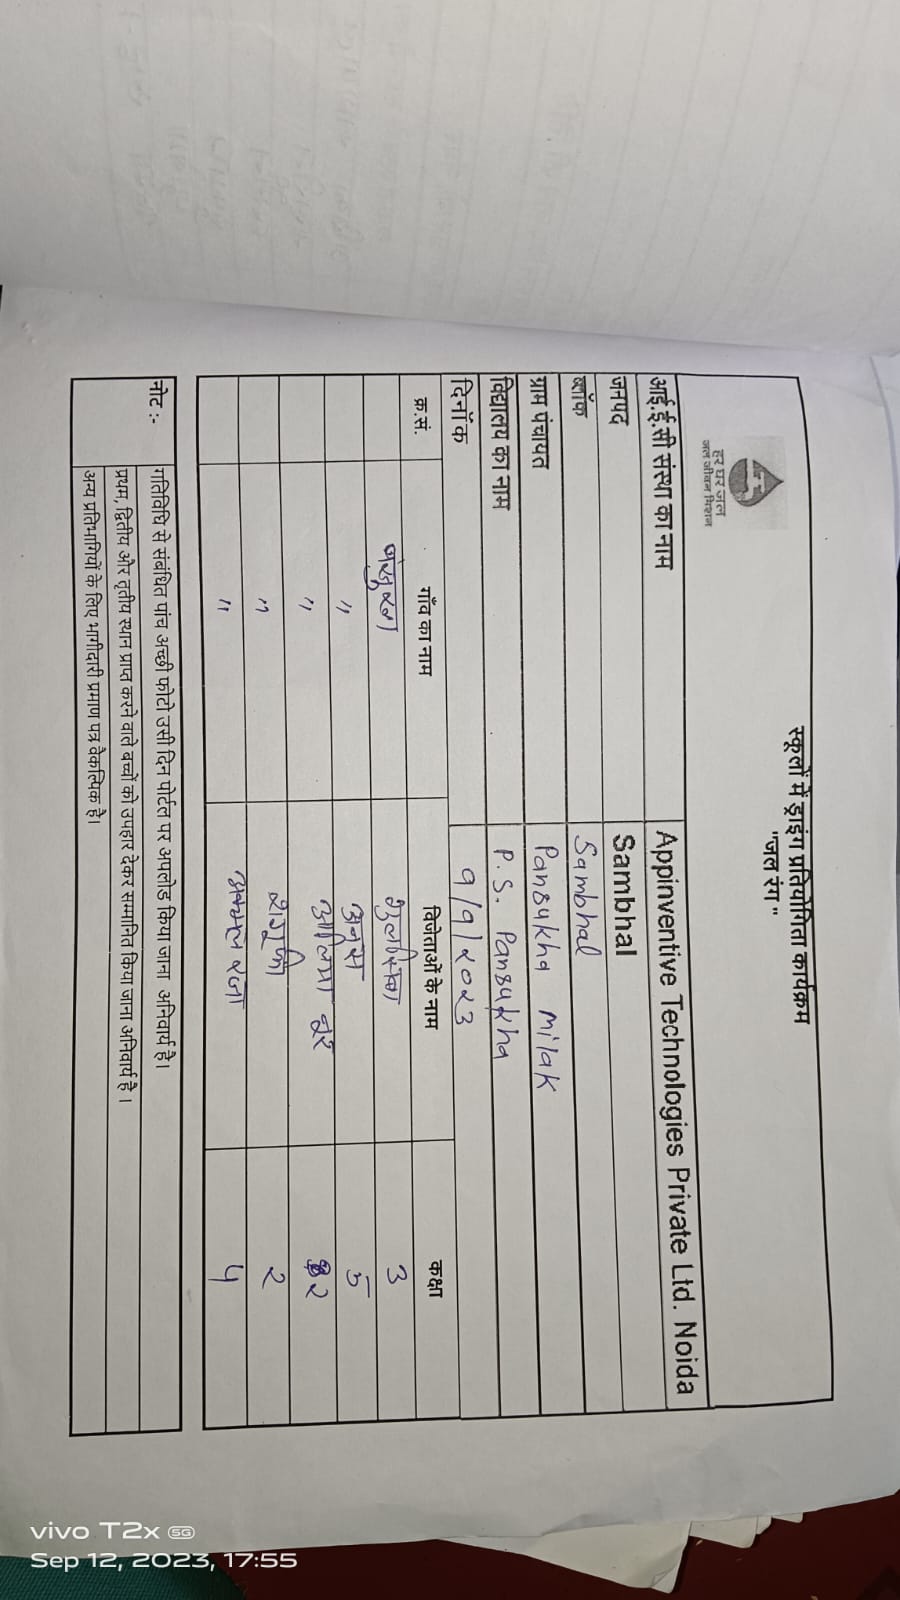 स्कूलों में ड्राइंग प्रतियोगिता कार्यक्रम
"जल रंग"
हर घर जल
जल जीवन मिशन
आई.ई.सी संस्था का नाम Appinventive Technologies Private Ltd. Noida
जनपद Sambhal
ब्लॉक Sambhal
ग्राम पंचायत Pansukha milak
विद्यालय का नाम P.S. Pansukha
दिनॉक 9/9/2023
क्र.सं. गाँव का नाम विजेताओं के नाम कक्षा
3
" 5
" आलिमा नूर 2
" 2
" 4
नोट :- गतिविधि से संबंधित पांच अच्छी फोटो उसी दिन पोर्टल पर अपलोड किया जाना अनिवार्य है।
प्रथम, द्वितीय और तृतीय स्थान प्राप्त करने वाले बच्चों को उपहार देकर सम्मानित किया जाना अनिवार्य है।
अन्य प्रतिभागियों के लिए भागीदारी प्रमाण पत्र वैकल्पिक है।
vivo T2x 5G
Sep 12, 2023, 17:55